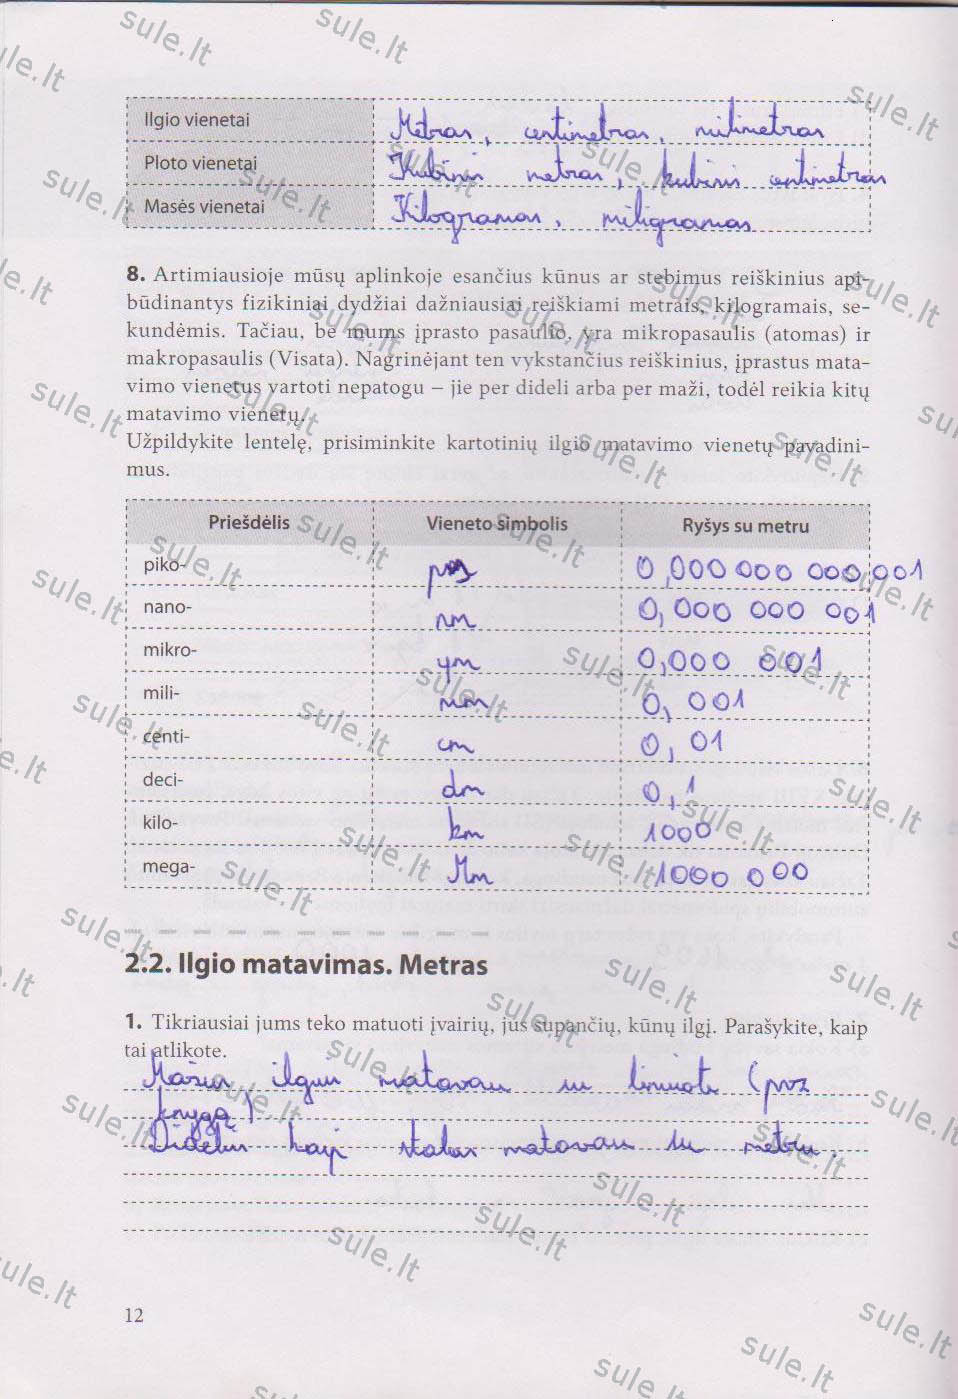 Ilgio vienetai Metras, centimetras, milimetras
Ploto vienetai Kubinis metras, kubinis centimetras
Masės vienetai Kilogramas, miligramas
8. Artimiausioje mūsų aplinkoje esančius kūnus ar stebimus reiškinius api-
būdinantys fizikiniai dydžiai dažniausiai reiškiami metrais, kilogramais, se-
kundėmis. Tačiau, be mums įprasto pasaulio, yra mikropasaulis (atomas) ir
makropasaulis (Visata). Nagrinėjant ten vykstančius reiškinius, įprastus mata-
vimo vienetus vartoti nepatogu – jie per dideli arba per maži, todėl reikia kitų
matavimo vienetų.
Užpildykite lentelę, prisiminkite kartotinių ilgio matavimo vienetų pavadini-
mus.
Priešdėlis Vieneto simbolis Ryšys su metru
piko- pm 0,000 000 000 001
nano- nm 0,000 000 001
mikro- μm 0,000 001
mili- mm 0,001
centi- cm 0,01
deci- dm 0,1
kilo- km 1000
mega- Mm 1000 000
2.2. Ilgio matavimas. Metras
1. Tikriausiai jums teko matuoti įvairių, jus supančių, kūnų ilgį. Parašykite, kaip
tai atlikote.
Mažus ilgius matavau su liniuote (pvz
knygą)
Didelius kaip stalas matavau su metru.
12
sule.lt